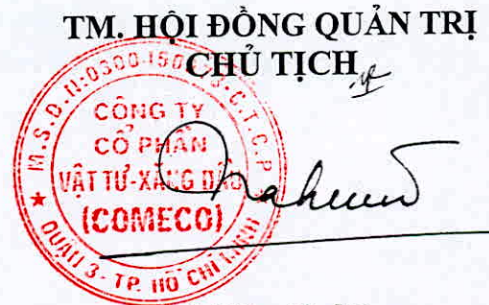 TM. HỘI ĐỒNG QUẢN TRỊ
CHỦ TỊCH
M.S.D.N:0300450
C.T.C.P
CÔNG TY
CỔ PHẦN
VẬT TƯ-XĂNG DẦU
(COMECO)
QUẬN 3 - TP. HỒ CHÍ MINH